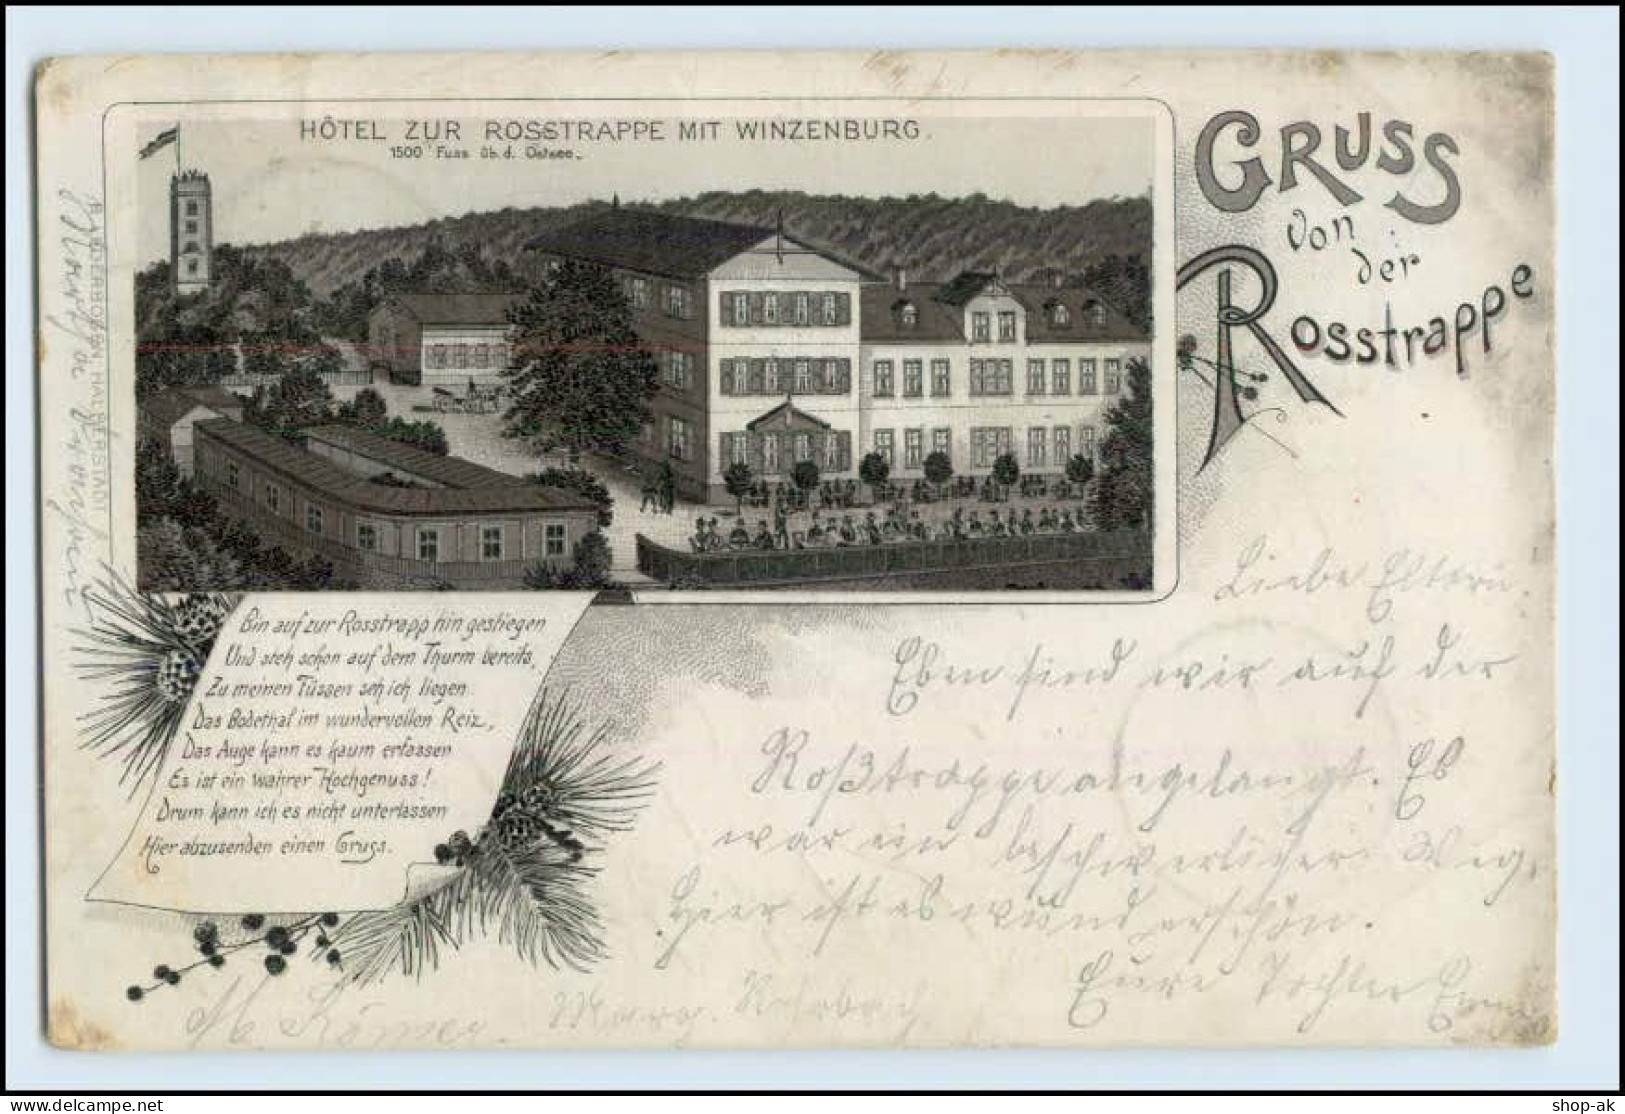 HÔTEL ZUR ROSSTRAPPE MIT WINZENBURG.
1500 Fuss üb. d. Ostsee.
GRUSS
von
der
Rosstrappe
Bin auf zur Rosstrapp hin gestiegen
Und steh schon auf dem Thurm bereits,
Zu meinen Füssen seh ich liegen
Das Bodethal im wundervollen Reiz,
Das Auge kann es kaum erfassen
Es ist ein wahrer Hochgenuss!
Drum kann ich es nicht unterlassen
Hier abzusenden einen Gruss.
Liebe Eltern.
Eben sind wir auf der
Roßtrappe angelangt. Es
war ein beschwerlicher Weg,
Hier ist es wunderschön.
Eure Tochter
Marg.
HALBERSTADT
shop-ak